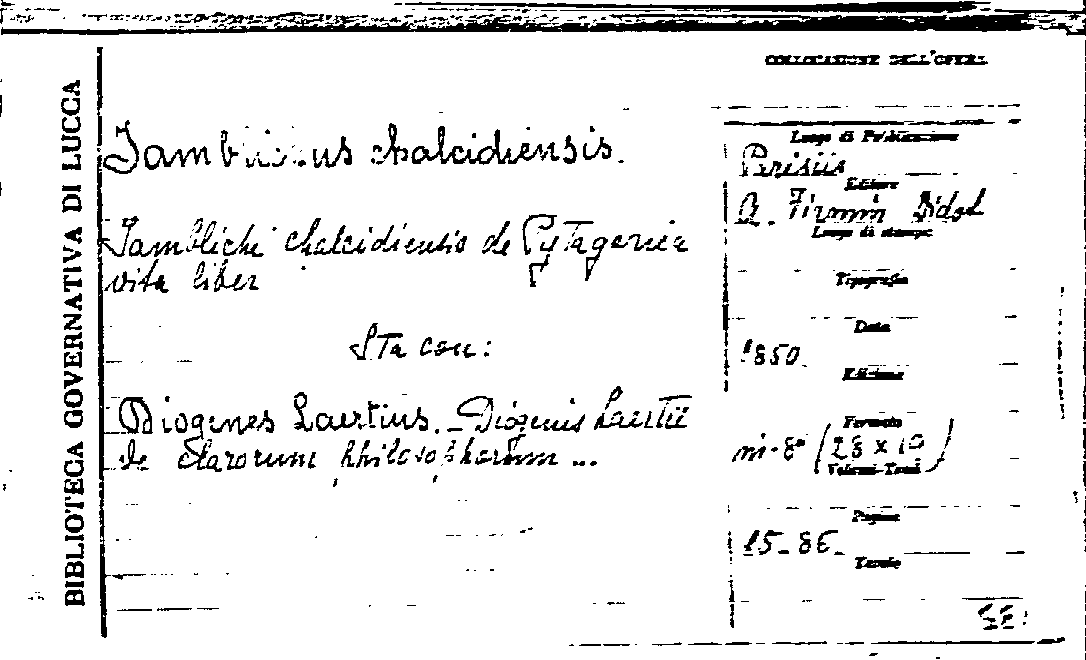 BIBLIOTECA GOVERNATIVA DI LUCCA
COLLOCAZIONE DELL'OPERA
chalcidiensis.
Iamblichi chalcidiensis de Pytagorica
vita liber
Sta con:
Diogenes Laertius. - Diogenis Laertii
de clarorum philosophorum ...
Luogo di Pubblicazione
Parisiis
Editore
A. Firmin Didot
Luogo di stampa
Tipografia
Data
1850
Edizione
Formato
in-8° (28 x
Volumi-Tomi
Pagine
15-86
Tavole